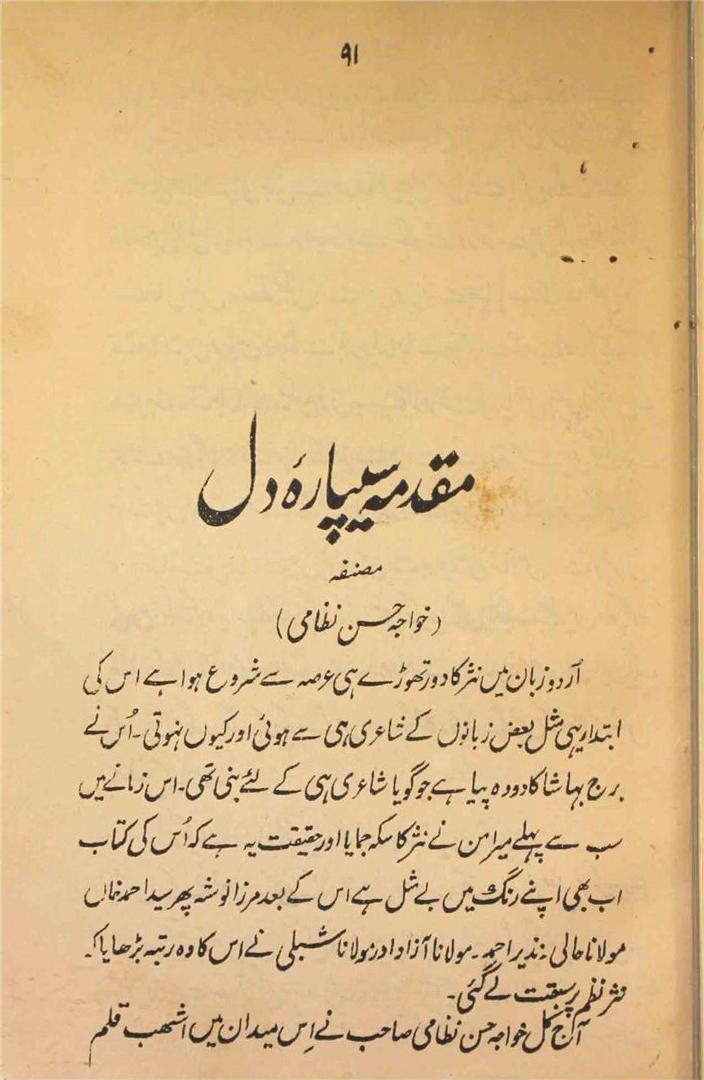 ۹۱
مقدمہ سیپارۂ دل
مصنفہ
(خواجہ حسن نظامی)
اُردو زبان میں نثر کا دور تھوڑے ہی عرصہ سے شروع ہوا ہے اس کی
ابتدا بہی مثل بعض زبانوں کے شاعری ہی سے ہوئی اور کیوں نہوتی۔ اُس نے
برج بہاشا کا دودہ پیا ہے جو گویا شاعری ہی کے لئے بنی تھی۔ اس زمانے میں
سب سے پہلے میر امن نے نثر کا سکہ جمایا اور حقیقت یہ ہے کہ اُس کی کتاب
اب بھی اپنے رنگ میں بے مثل ہے اس کے بعد مرزا نوشہ پھر سید احمد خاں
مولانا حالی۔ نذیر احمد۔ مولانا آزاد اور مولانا شبلی نے اس کا وہ رتبہ بڑھایا کہ
نثر نظم پر سبقت لے گئی۔
آج کل خواجہ حسن نظامی صاحب نے اِس میدان میں اشہب قلم